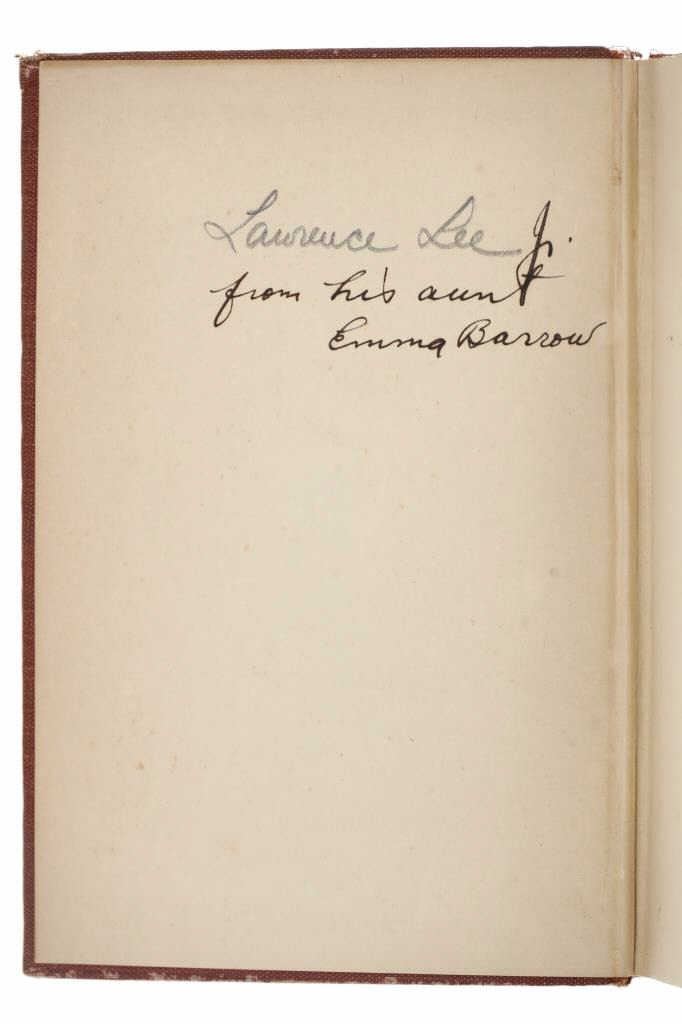 Lawrence Lee Jr.
from his aunt
Emma Barrow